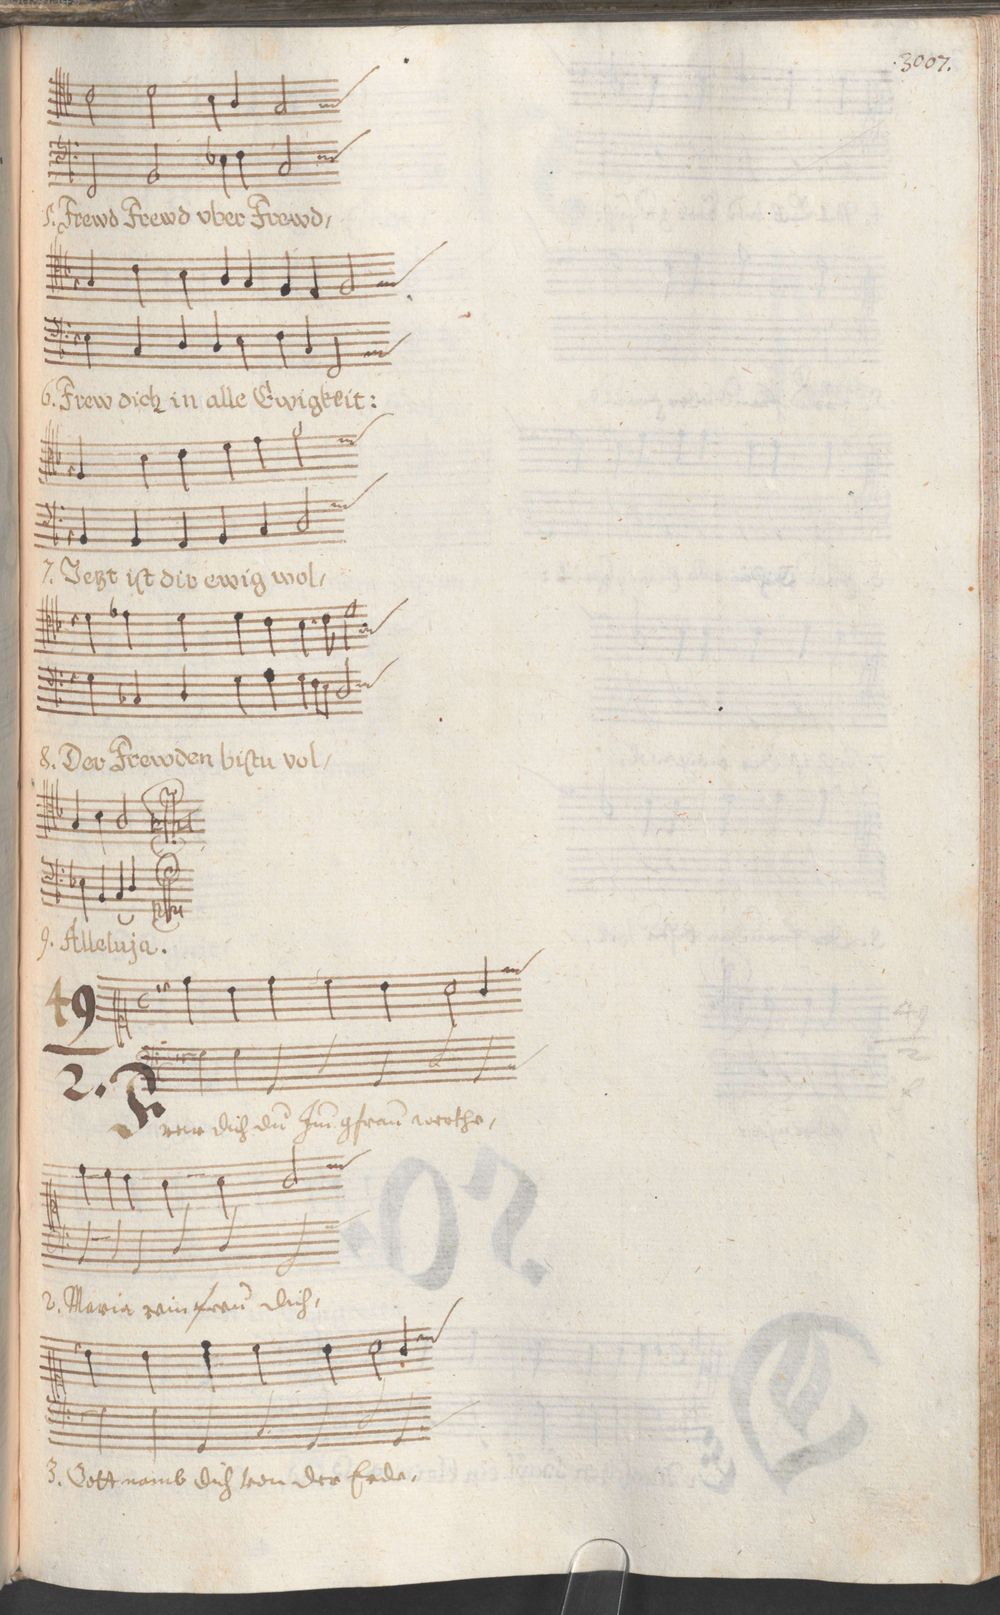 3007.
5. Frewd Frewd vber Frewd,
6. Frew dich in alle Ewigkeit:
7. Jetzt ist dir ewig wol,
8. Der Frewden bistu vol,
9. Alleluja.
49
2. Frew dich du Jungfraw werthe,
2. Maria rein frew dich,
3. Gott namb dich von der Erde,